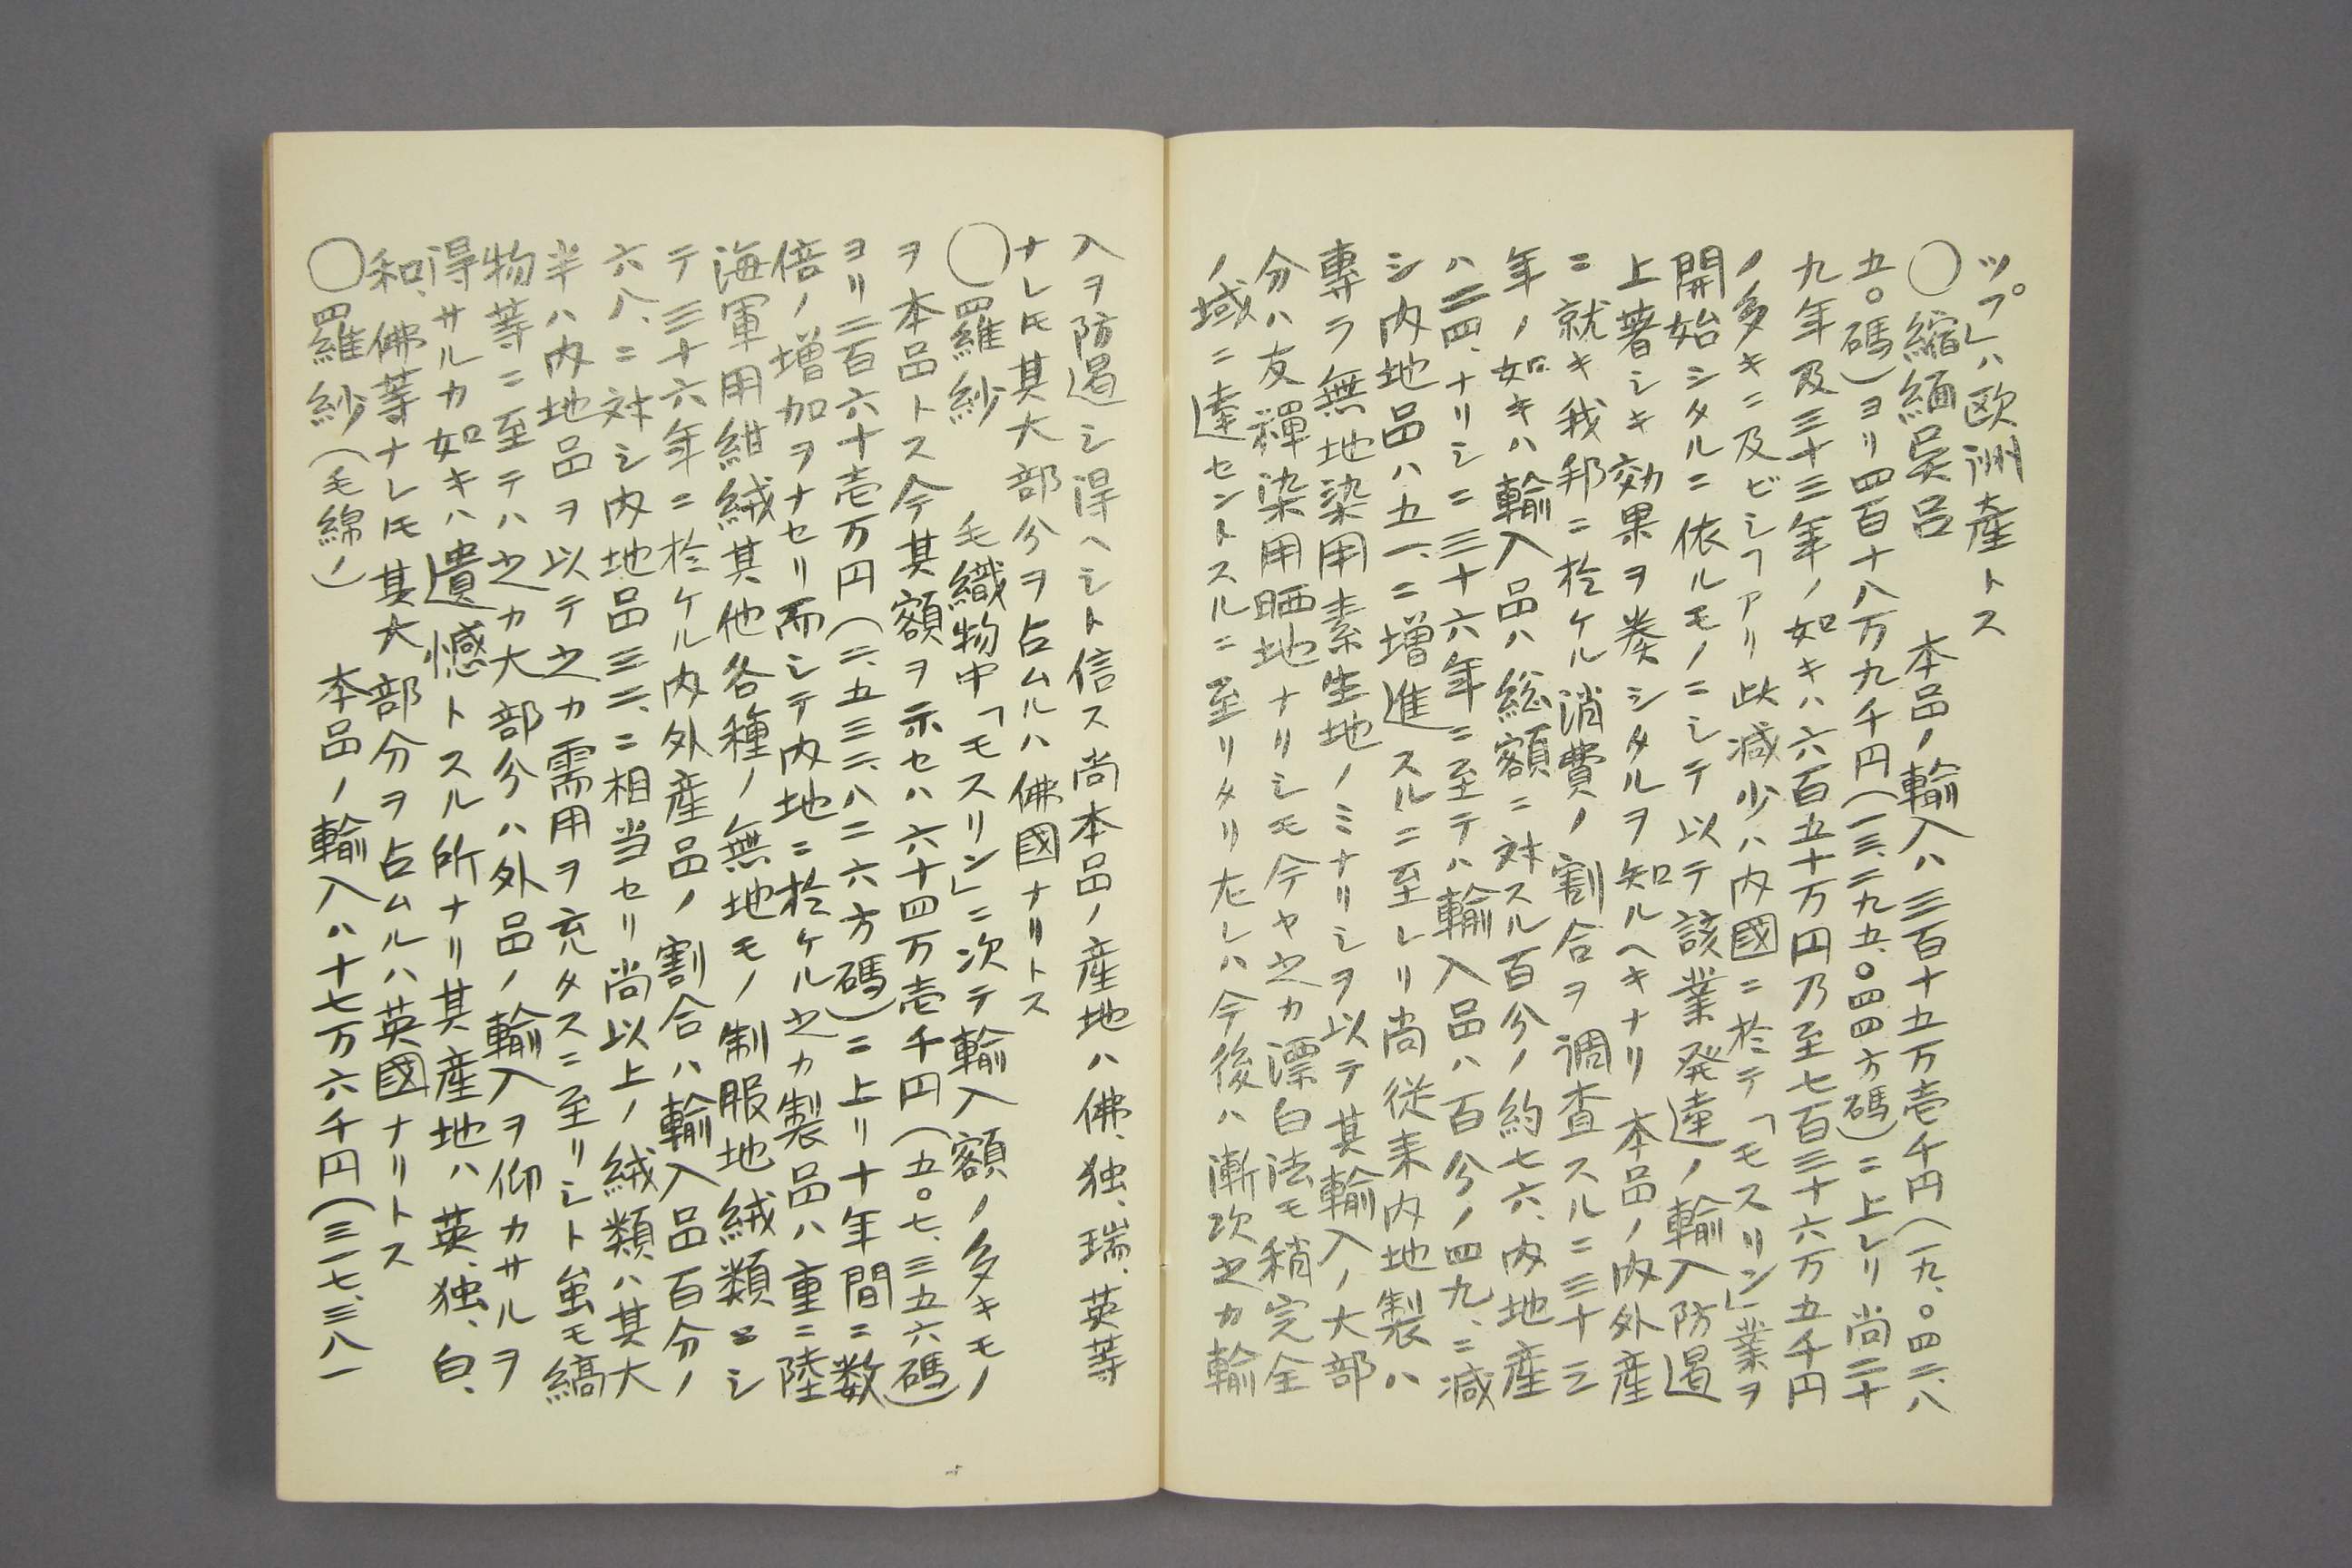 ップ」ハ欧洲産トス
○縮緬呉呂　本品ノ輸入ハ三百十五万壱千円（一九、〇四二、八
五〇碼）ヨリ四百十八万九千円（一三、二九五、〇四四方碼）ニ上レリ尚二十
九年及三十三年ノ如キハ六百五十万円乃至七百三十六万五千円
ノ多キニ及ビシヿアリ此減少ハ内國ニ於テ「モスリン」業ヲ
開始シタルニ依ルモノニシテ以テ該業発達ノ輸入防遏
上著シキ効果ヲ奏シタルヲ知ルヘキナリ　本品ノ内外産
ニ就キ我邦ニ於ケル消費ノ割合ヲ調査スルニ三十三
年ノ如キハ輸入品ハ総額ニ対スル百分ノ約七六、内地産
ハ二四、ナリシニ三十六年ニ至テハ輸入品ハ百分ノ四九、ニ減
シ内地品ハ五一、ニ増進スルニ至レリ尚従来内地製ハ
専ラ無地染用素生地ノミナリシヲ以テ其輸入ノ大部
分ハ友禅染用晒地ナリシモ今ヤ之カ漂白法モ稍完全
ノ域ニ達セントスルニ至リタリ左レハ今後ハ漸次之カ輸
入ヲ防遏シ得ヘシト信ス尚本品ノ産地ハ佛、独、瑞、英等
ナレ𪜈其大部分ヲ占ムルハ佛國ナリトス
○羅紗　毛織物中「モスリン」ニ次テ輸入額ノ多キモノ
ヲ本品トス今其額ヲ示セハ六十四万壱千円（五〇七、三五六碼）
ヨリ二百六十壱万円（二、五三二、八二六方碼）ニ上リ十年間ニ数
倍ノ増加ヲナセリ而シテ内地ニ於ケル之カ製品ハ重ニ陸
海軍用紺絨其他各種ノ無地モノ制服地絨類ニシ
テ三十六年ニ於ケル内外産品ノ割合ハ輸入品百分ノ
六八、ニ対シ内地品三二、ニ相当セリ尚以上ノ絨類ハ其大
半ハ内地品ヲ以テ之カ需用ヲ充タスニ至リシト虽モ縞
物等ニ至テハ之カ大部分ハ外品ノ輸入ヲ仰カサルヲ
得サルカ如キハ遺憾トスル所ナリ其産地ハ英、独、白、
和、佛等ナレ𪜈其大部分ヲ占ムルハ英國ナリトス
○羅紗（毛綿ノ）　本品ノ輸入ハ十七万六千円（三一七、三八一